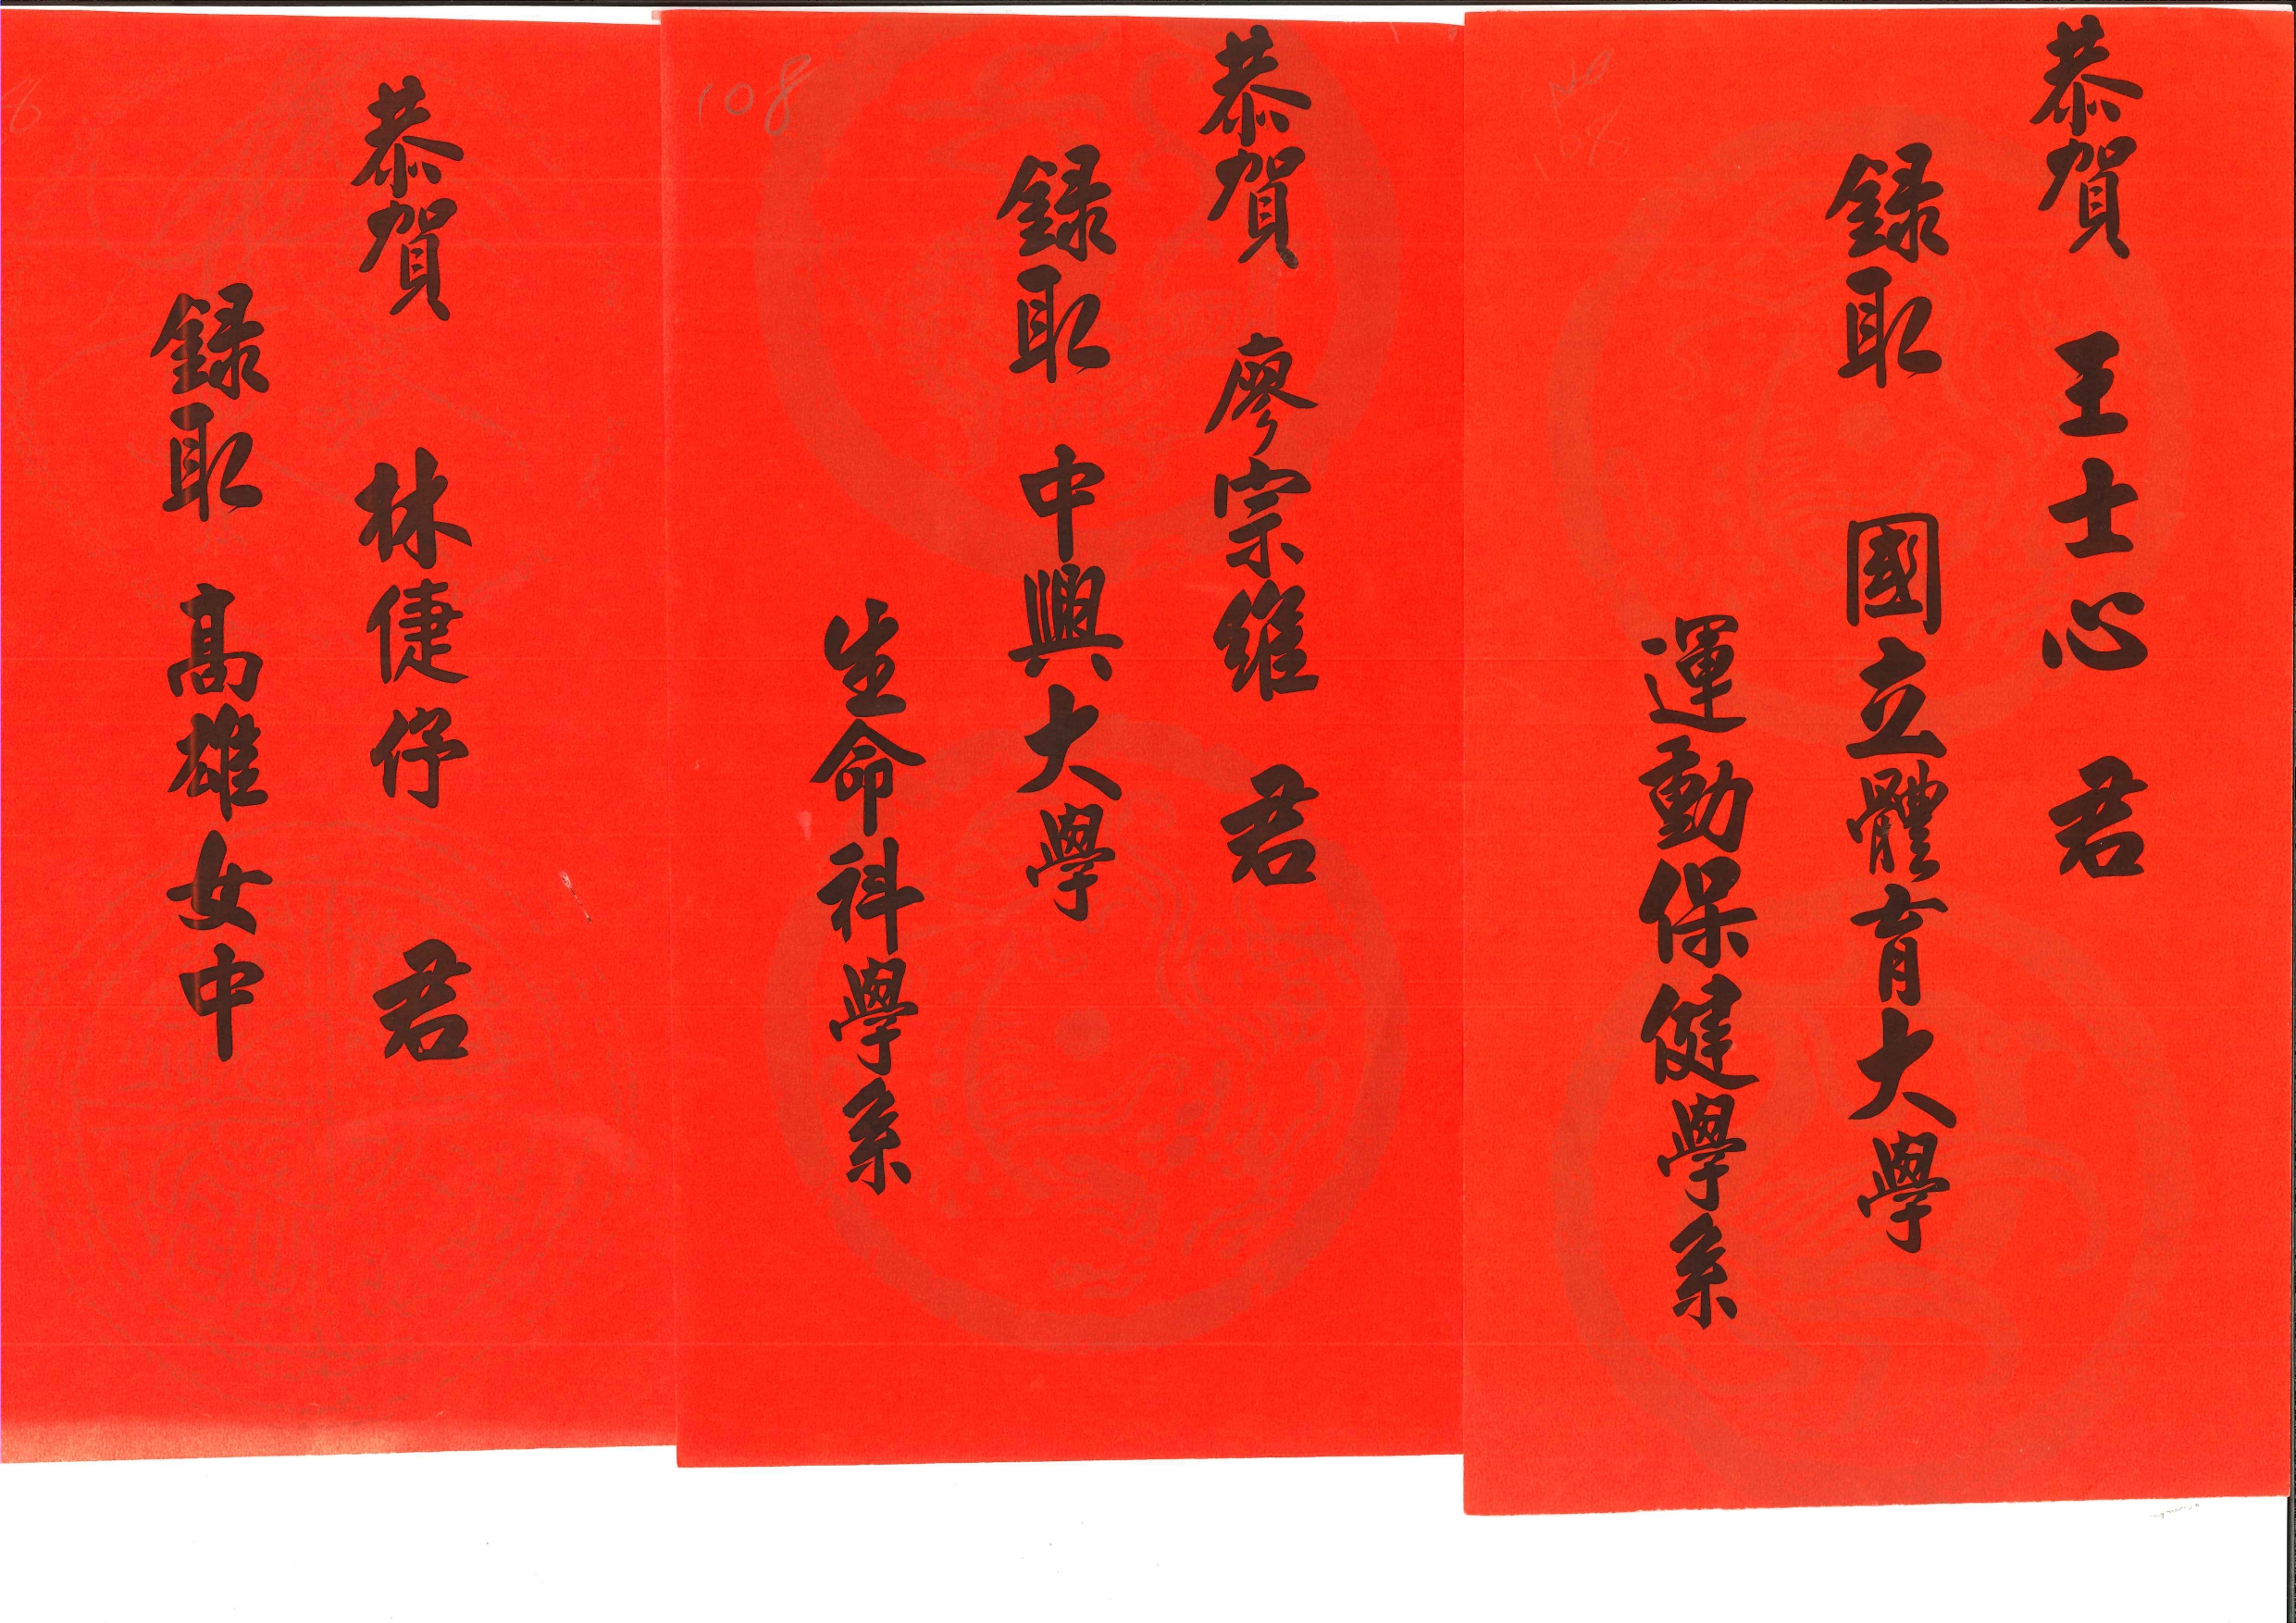 恭賀 王士心 君
錄取 國立體育大學
運動保健學系
108
恭賀 廖宗維 君
錄取 中興大學
生命科學系
恭賀 林倢伃 君
錄取 高雄女中